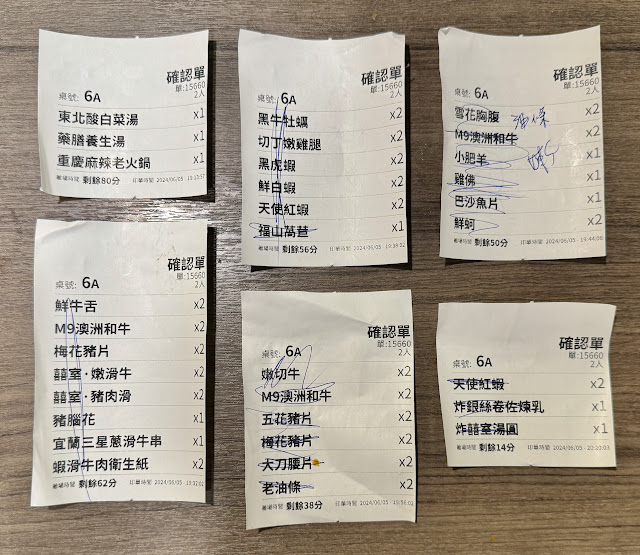 確認單
單:15660
桌號: 6A 2人
東北酸白菜湯 x1
藥膳養生湯 x1
重慶麻辣老火鍋 x1
離場時間 剩餘80分 印單時間 2024/06/05 - 19:13:57
確認單
單:15660
桌號: 6A 2人
黑牛牡蠣 x2
切丁嫩雞腿 x2
黑虎蝦 x2
鮮白蝦 x2
天使紅蝦 x2
福山萵苣 x1
離場時間 剩餘56分 印單時間 2024/06/05 - 19:38:02
確認單
單:15660
桌號: 6A 2人
雪花胸腹 x2
油條
M9澳洲和牛 x2
小肥羊 x1
雞佛 x1
巴沙魚片 x1
鮮蚵 x2
離場時間 剩餘50分 印單時間 2024/06/05 - 19:44:06
確認單
單:15660
桌號: 6A 2人
鮮牛舌 x2
M9澳洲和牛 x2
梅花豬片 x2
囍室·嫩滑牛 x2
囍室·豬肉滑 x2
豬腦花 x1
宜蘭三星蔥滑牛串 x1
蝦滑牛肉衛生紙 x2
離場時間 剩餘62分 印單時間 2024/06/05 - 19:32:02
確認單
單:15660
桌號: 6A 2人
嫩切牛 x2
M9澳洲和牛 x2
五花豬片 x2
梅花豬片 x2
大刀腰片 x2
老油條 x2
離場時間 剩餘38分 印單時間 2024/06/05 - 19:56:02
確認單
單:15660
桌號: 6A 2人
天使紅蝦 x2
炸銀絲卷佐煉乳 x1
炸囍室湯圓 x1
離場時間 剩餘14分 印單時間 2024/06/05 - 20:20:03